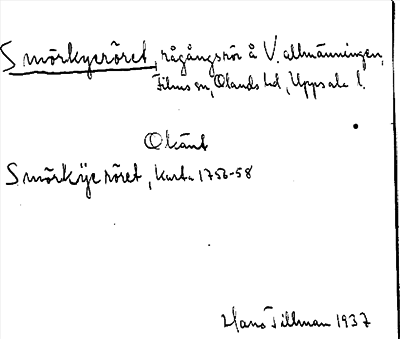 Smörkyeröret, rågångsrör å V. allmänningen,
Films sn, Olands hd, Uppsala l.
Okänt
Smörkÿe röret, karta 1756-58
Hans Tillman 1937